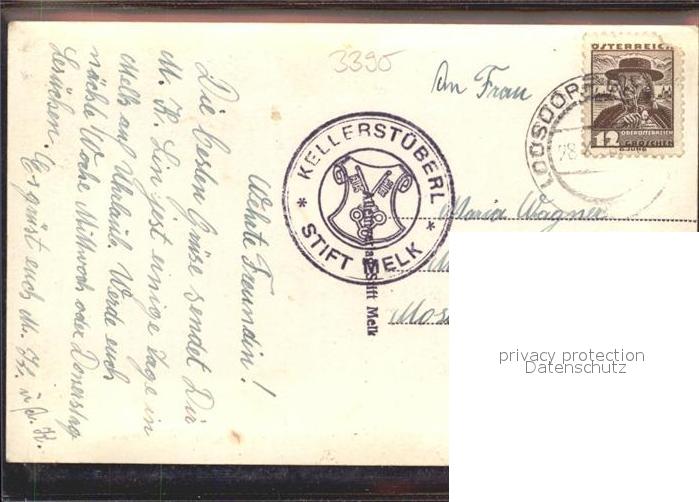 3390
An Frau
Maria Wagner
ÖSTERREICH
12
OBERÖSTERREICH
GROSCHEN
LOOSDORF
KELLERSTÜBERL
* STIFT MELK *
Stift Melk
Werte Freundin!
Die besten Grüße sendet Dir
M. H. Bin jest einige Tage in
Melk auf Uhrlaub. Werde euch
nächste Woche Mittwoch oder Donerstag
besuchen.
Es grüst euch M. H. u.
privacy protection
Datenschutz